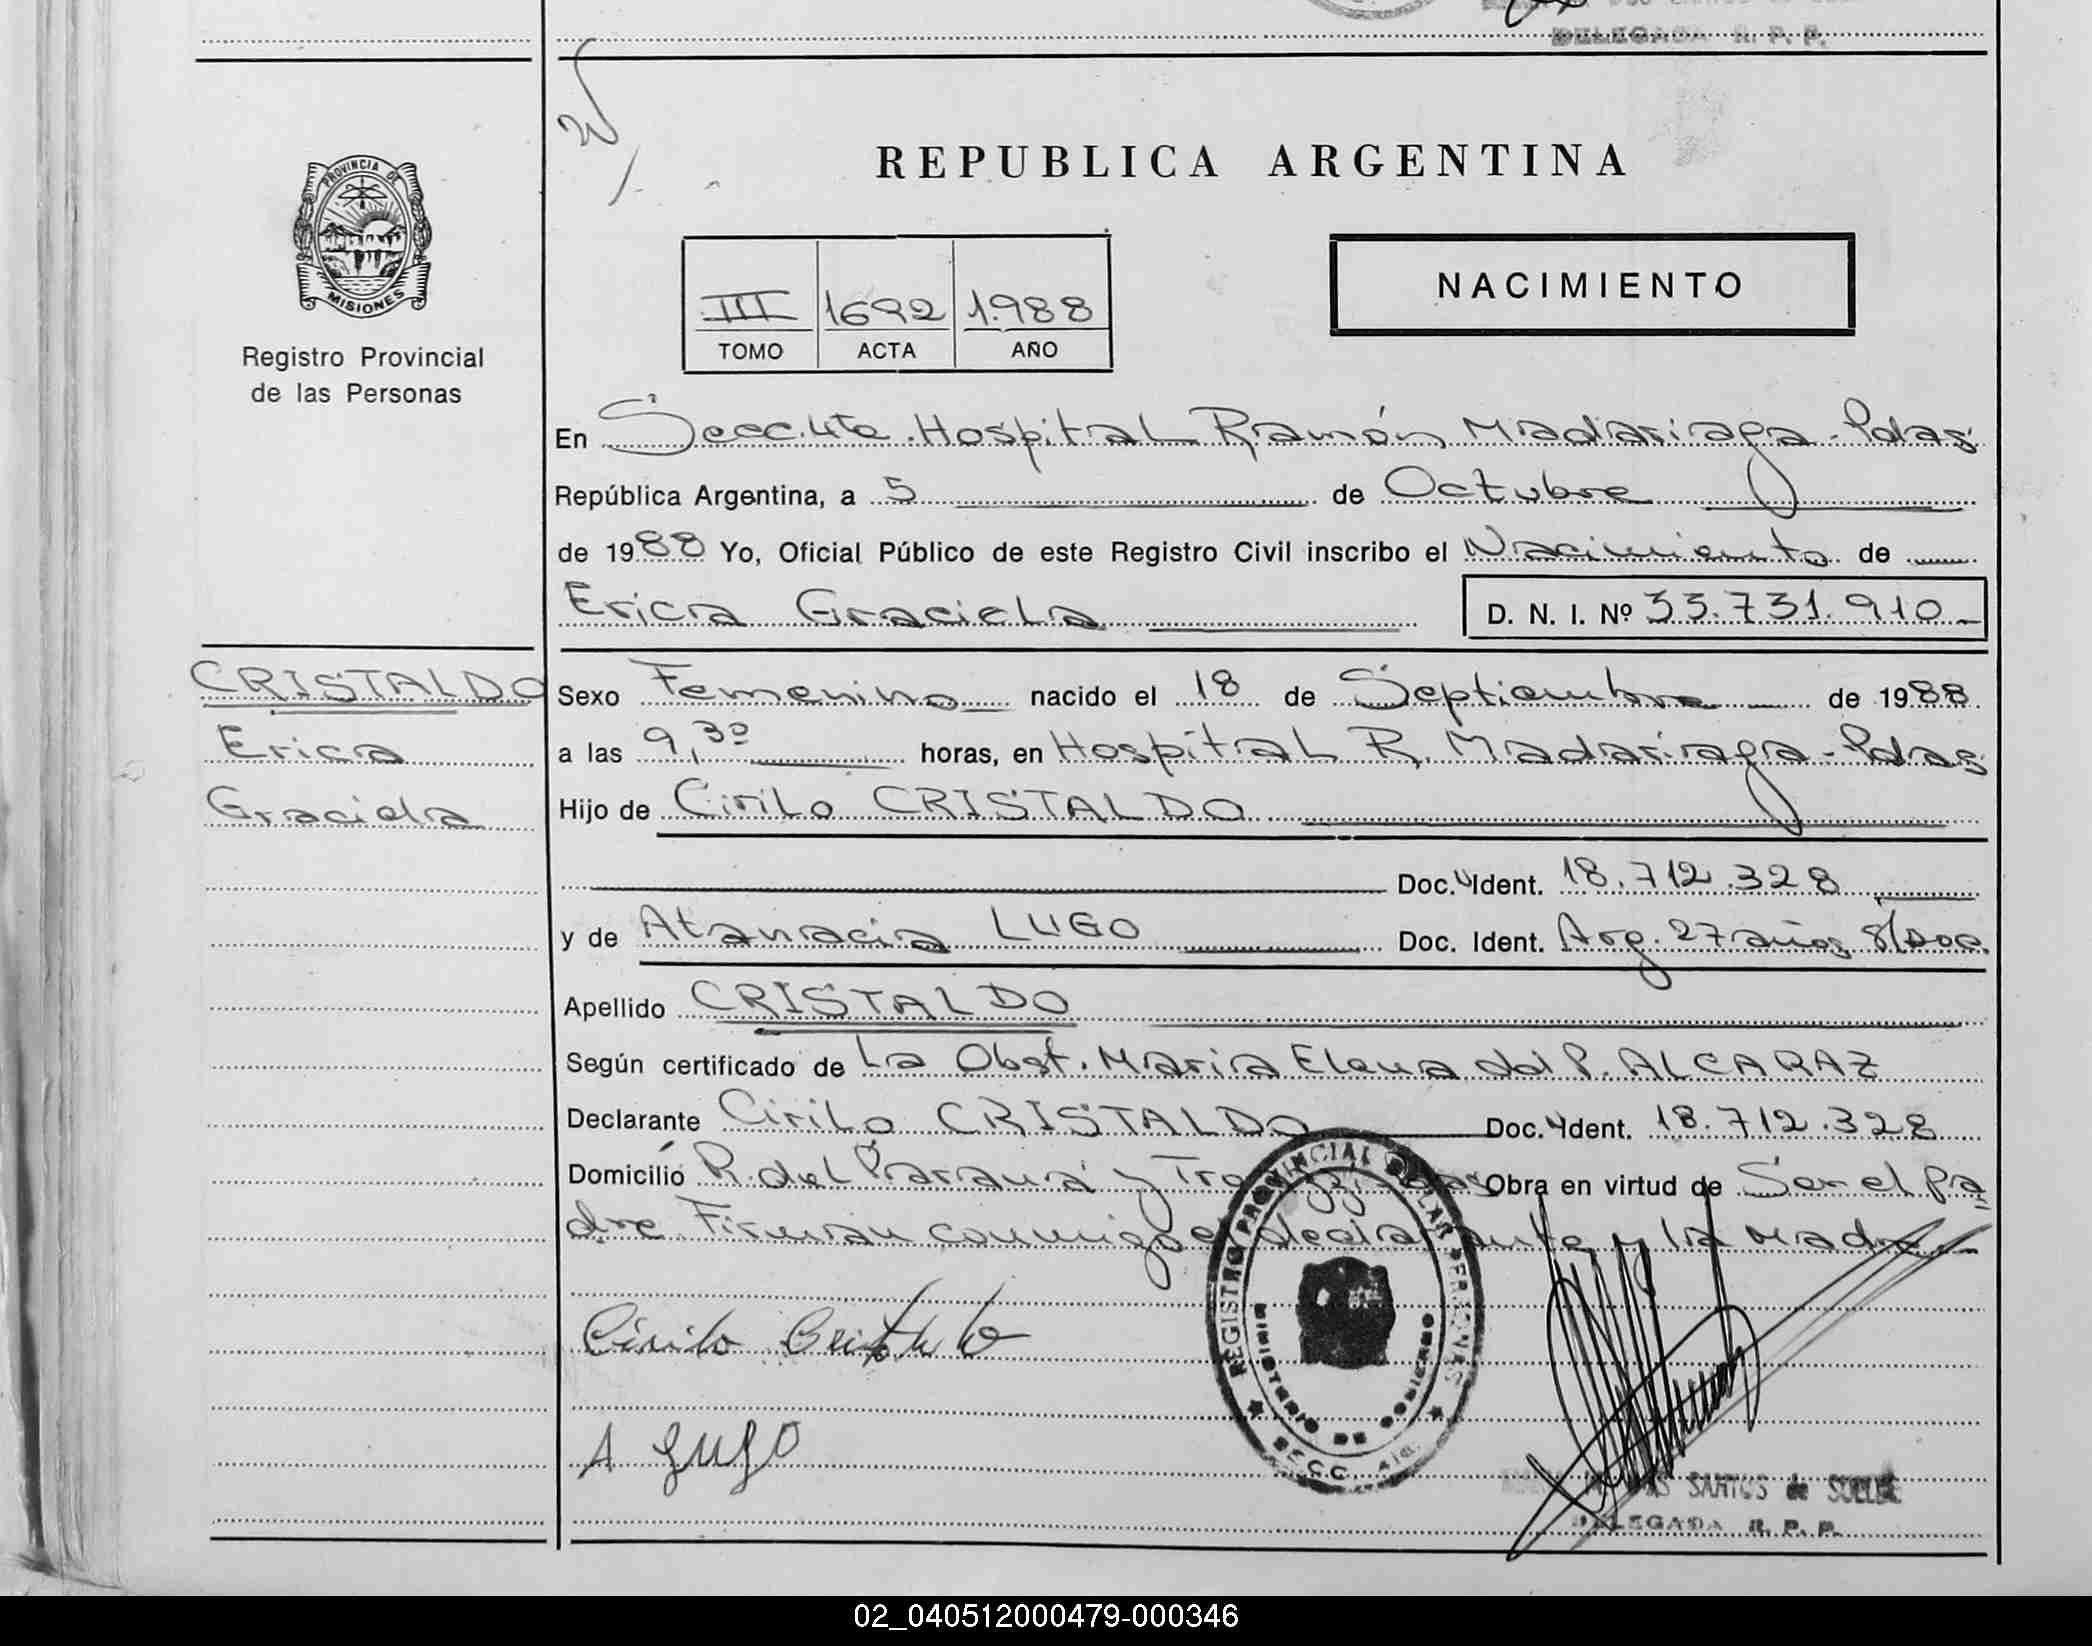 DELEGADA R. P. P.
PROVINCIA DE
MISIONES
Registro Provincial
de las Personas
REPUBLICA ARGENTINA
NACIMIENTO
III 1692 1.988
TOMO ACTA AÑO
En Secc. 4ta. Hospital Ramón Madariaga - Pdas
República Argentina, a 5 de Octubre
de 1988 Yo, Oficial Público de este Registro Civil inscribo el Nacimiento de
Erica Graciela D. N. I. Nº 33.731.910
CRISTALDO
Erica
Graciela
Sexo Femenino nacido el 18 de Septiembre de 1988
a las 9,30 horas, en Hospital R. Madariaga - Pdas
Hijo de Cirilo CRISTALDO
Doc. Ident. 18.712.328
y de Atanacia LUGO Doc. Ident. Arg. 27 años s/doc.
Apellido CRISTALDO
Según certificado de La Obst. Maria Elena del P. ALCARAZ
Declarante Cirilo CRISTALDO Doc. Ident. 18.712.328
Domicilio R. del Paraná y Obra en virtud de Ser el pa
dre. Firman conmigo el declarante y la Madre
Cirilo Cristaldo
A Lugo
REGISTRO PROVINCIAL DE LAS PERSONAS
MINISTERIO DE GOBIERNO
SECC. 4ta.
SANTOS de
DELEGADA R. P. P.
02_040512000479-000346